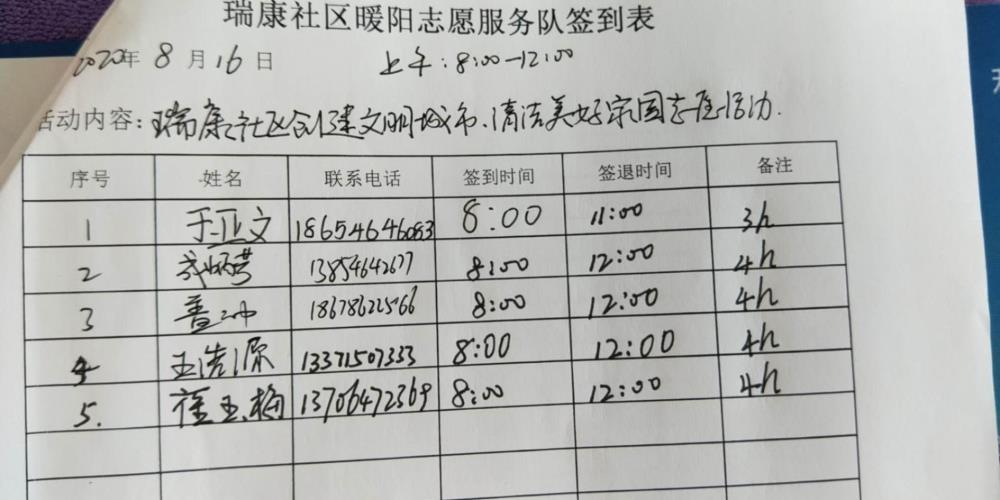 瑞康社区暖阳志愿服务队签到表
2020年 8 月 16 日 上午:8:00-12:00
活动内容:瑞康社区创建文明城市、清洁美好家园志愿活动.
序号 姓名 联系电话 签到时间 签退时间 备注
1 于亚文 18654646083 8:00 11:00 3h
2 13854642677 8:00 12:00 4h
3 18678622566 8:00 12:00 4h
4 王浩源 13371507333 8:00 12:00 4h
5. 崔玉梅 13706472369 8:00 12:00 4h